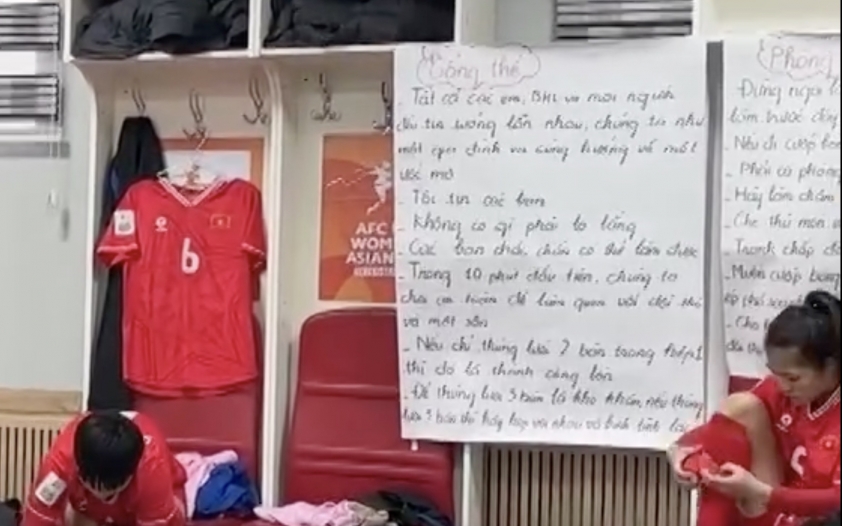 6
AFC
WOM
ASIAN
Tổng thể
- Tất cả các em, BHL và mọi người
đều tin tưởng lẫn nhau, chúng ta như
một gia đình và cùng hướng về một
ước mơ
- Tôi tin các bạn
- Không có gì phải lo lắng
- Các bạn chắc chắn có thể làm được
- Trong 10 phút đầu tiên, chúng ta
làm quen với đối thủ
và mặt sân
- Nếu chỉ thủng lưới 2 bàn trong hiệp 1
thì đó là thành công lớn
- Để thủng lưới 3 bàn là khó khăn, nếu thủng
lưới 3 bàn thì hãy họp với nhau và bình tĩnh lại
Phòng
Đừng ngại
làm trước đây
- Nếu đi cướp bón
- Phải có phong
- Hãy làm chậm
- Che thủ môn
- Tranh chấp
- Muốn cướp bóng